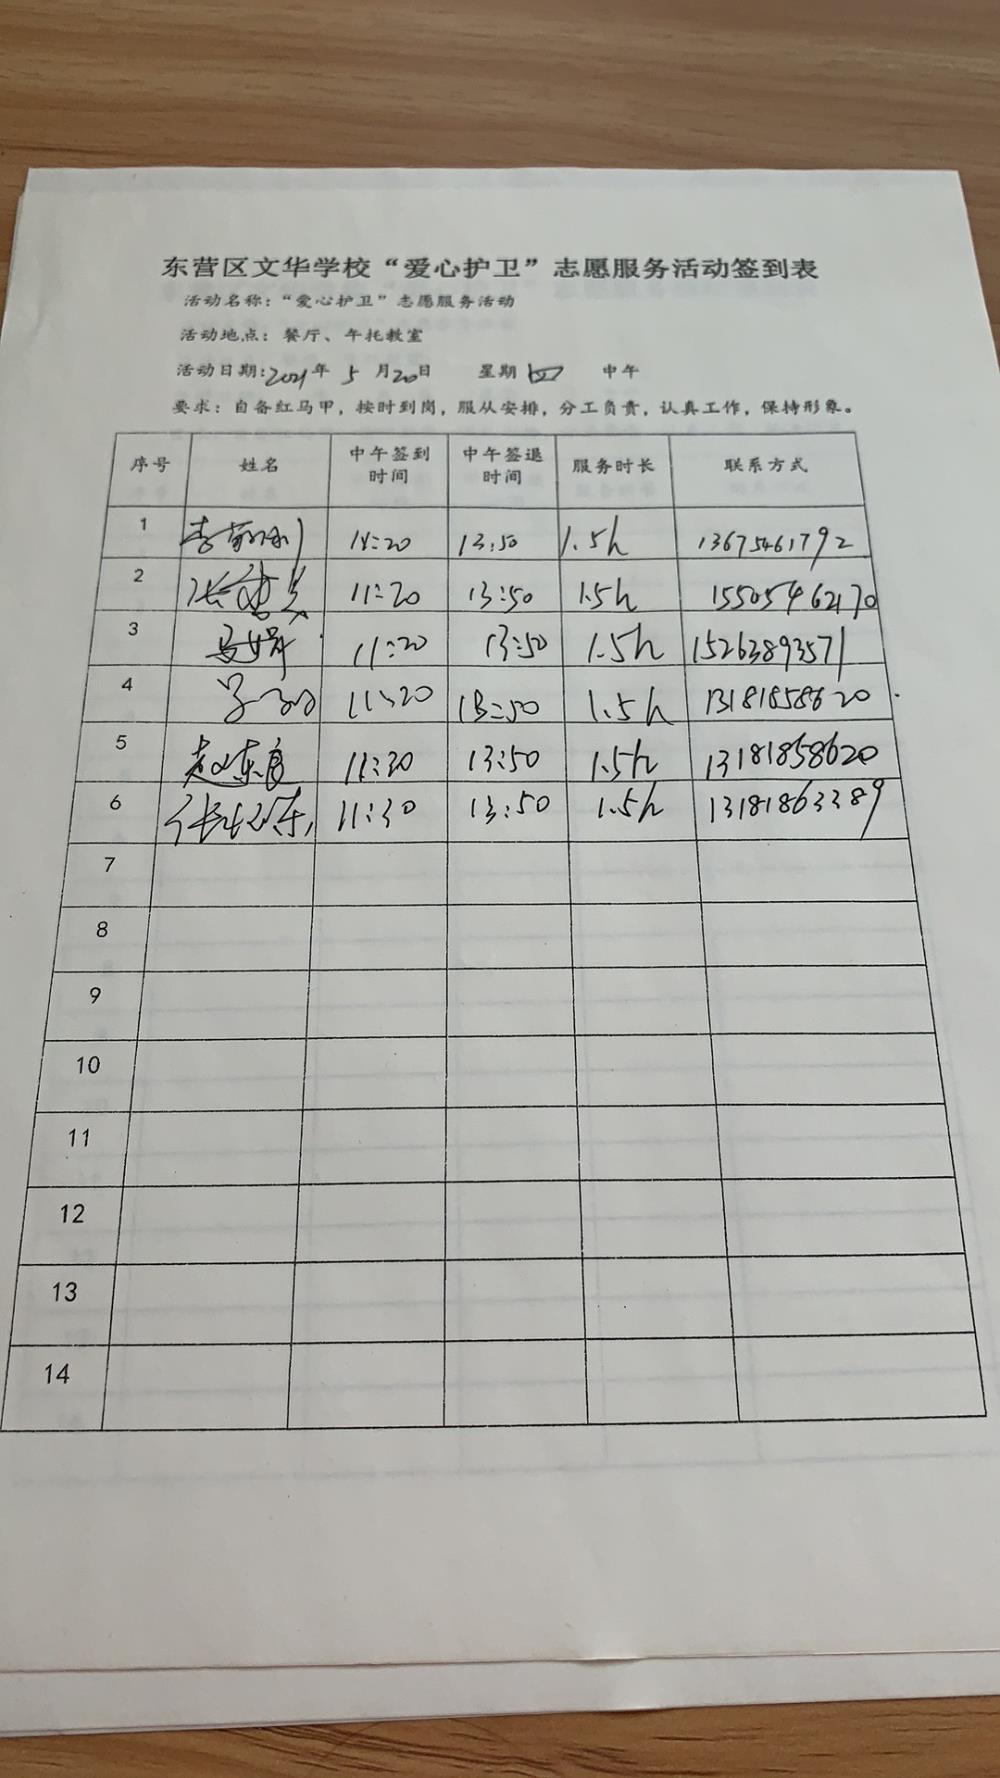 东营区文华学校“爱心护卫”志愿服务活动签到表
活动名称：“爱心护卫”志愿服务活动
活动地点：餐厅、午托教室
活动日期:2021年 5 月20日 星期 四 中午
要求：自备红马甲，按时到岗，服从安排，分工负责，认真工作，保持形象。
序号 姓名 中午签到时间 中午签退时间 服务时长 联系方式
1 13:50 1.5h 13675461792
2 11:20 13:50 1.5h 15505462170
3 马娟 11:20 13:50 1.5h 15263893571
4 11:20 13:50 1.5h 13181858620
5 赵东良 11:20 13:50 1.5h 13181858620
6 11:30 13:50 1.5h 13181863389
7
8
9
10
11
12
13
14